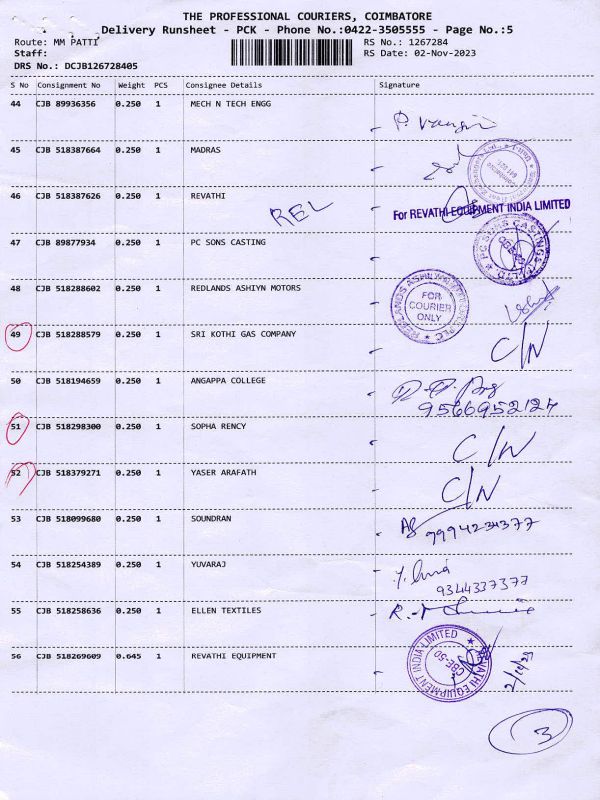 THE PROFESSIONAL COURIERS, COIMBATORE
Delivery Runsheet - PCK - Phone No.:0422-3505555 - Page No.:5
Route: MM PATTI RS No.: 1267284
Staff: RS Date: 02-Nov-2023
DRS No.: DCJB126728405
S No Consignment No Weight PCS Consignee Details Signature
44 CJB 89936356 0.250 1 MECH N TECH ENGG
45 CJB 518387664 0.250 1 MADRAS
46 CJB 518387626 0.250 1 REVATHI REL
For REVATHI EQUIPMENT INDIA LIMITED
47 CJB 89877934 0.250 1 PC SONS CASTING PC SONS CASTINGS
48 CJB 518288602 0.250 1 REDLANDS ASHIYN MOTORS
FOR
COURIER
ONLY
49 CJB 518288579 0.250 1 SRI KOTHI GAS COMPANY C/N
50 CJB 518194659 0.250 1 ANGAPPA COLLEGE
9566952127
51 CJB 518298300 0.250 1 SOPHA RENCY C/N
52 CJB 518379271 0.250 1 YASER ARAFATH C/N
53 CJB 518099680 0.250 1 SOUNDRAN 9994234377
54 CJB 518254389 0.250 1 YUVARAJ
9344337377
55 CJB 518258636 0.250 1 ELLEN TEXTILES
56 CJB 518269609 0.645 1 REVATHI EQUIPMENT REVATHI EQUIPMENT INDIA LIMITED
CBE-50
3